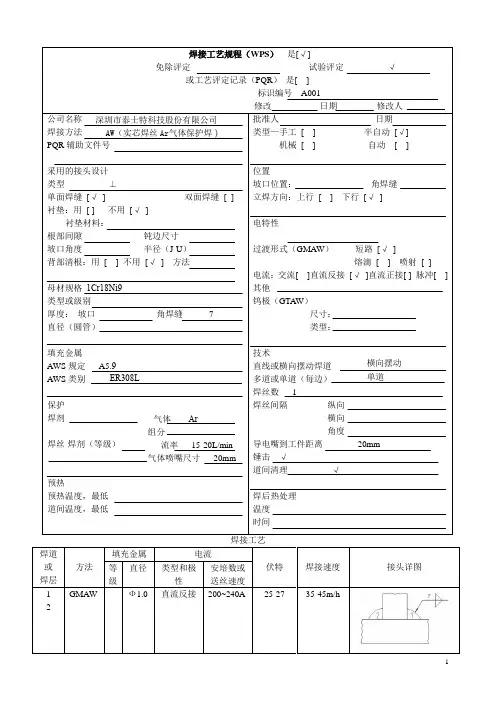 焊接工艺规程（WPS） 是[√]
免除评定 试验评定 √
或工艺评定记录（PQR） 是[ ]
标识编号 A001
修改 日期 修改人
公司名称 深圳市泰士特科技股份有限公司
焊接方法 AW（实芯焊丝Ar气体保护焊）
PQR辅助文件号
批准人 日期
类型—手工 [ ] 半自动 [√]
机械 [ ] 自动 [ ]
采用的接头设计
类型 ⊥
单面焊缝 [√] 双面焊缝 [ ]
衬垫：用 [ ] 不用 [√]
衬垫材料：
根部间隙 钝边尺寸
坡口角度 半径（J-U）
背部清根：用 [ ] 不用 [√] 方法
位置
坡口位置： 角焊缝
立焊方向：上行 [ ] 下行 [√]
电特性
过渡形式（GMAW） 短路 [√]
熔滴 [ ] 喷射 [ ]
电流：交流[ ]直流反接 [√]直流正接[ ] 脉冲[ ]
其他
钨极（GTAW）
尺寸：
类型：
母材规格 1Cr18Ni9
类型或级别
厚度： 坡口 角焊缝 7
直径（圆管）
填充金属
AWS规定 A5.9
AWS类别 ER308L
技术
直线或横向摆动焊道 横向摆动
多道或单道（每边） 单道
焊丝数 1
焊丝间隔 纵向
横向
角度
导电嘴到工件距离 20mm
锤击 √
道间清理 √
保护
焊剂 气体 Ar
组分
焊丝-焊剂（等级） 流率 15-20L/min
气体喷嘴尺寸 20mm
预热
预热温度，最低
道间温度，最低
焊后热处理
温度
时间
焊接工艺
焊道或焊层 方法 填充金属 电流 伏特 焊接速度 接头详图
等级 直径 类型和极性 安培数或送丝速度
1 GMAW Φ1.0 直流反接 200~240A 25-27 35-45m/h
2
7
1